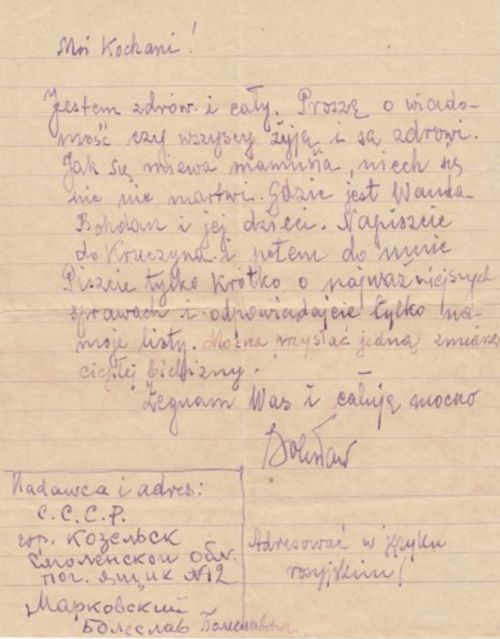 Moi Kochani!
Jestem zdrów i cały. Proszę o wiado-
mość czy wszyscy żyją i są zdrowi.
Jak się miewa mamusia, niech się
nic nie martwi. Gdzie jest Wanda
Bohdan i jej dzieci. Napiszcie
do Kruczyna i potem do mnie
Piszcie tylko krótko o najważniejszych
sprawach i odpowiadajcie tylko na
moje listy. Można przysłać jedną zmianę
ciepłej bielizny.
Żegnam Was i całuję mocno
Bolesław
Nadawca i adres:
С.С.С.Р.
гор. Козельск
Смоленской обл.
поч. ящик №12
Марковский
Болеслав Болеславович
Adresować w języku
rosyjskim!